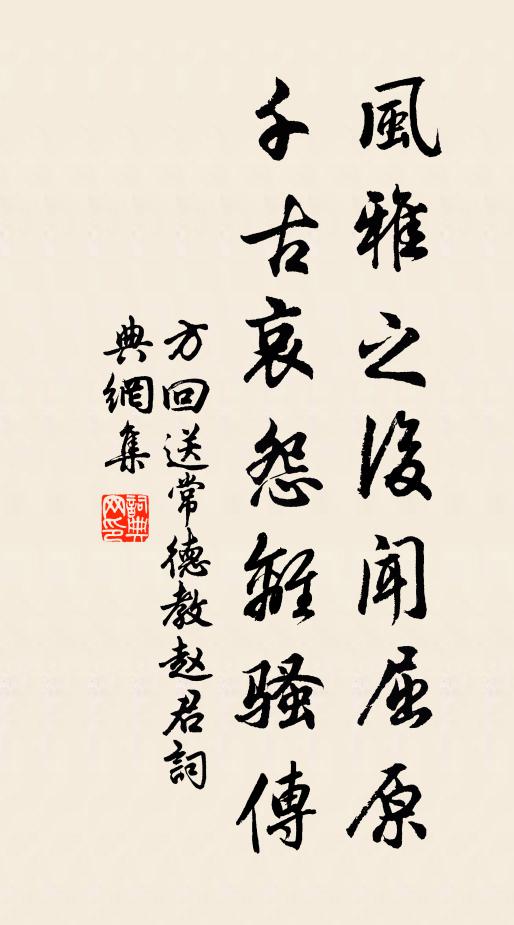 風雅之後聞屈原
千古哀怨離騷傳
方回送常德教赵君詞
典網集
詞典網印